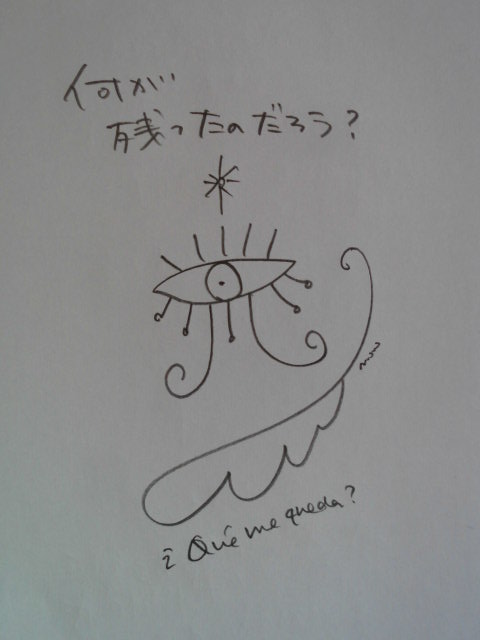 何が
残ったのだろう?
¿ Qué me queda?